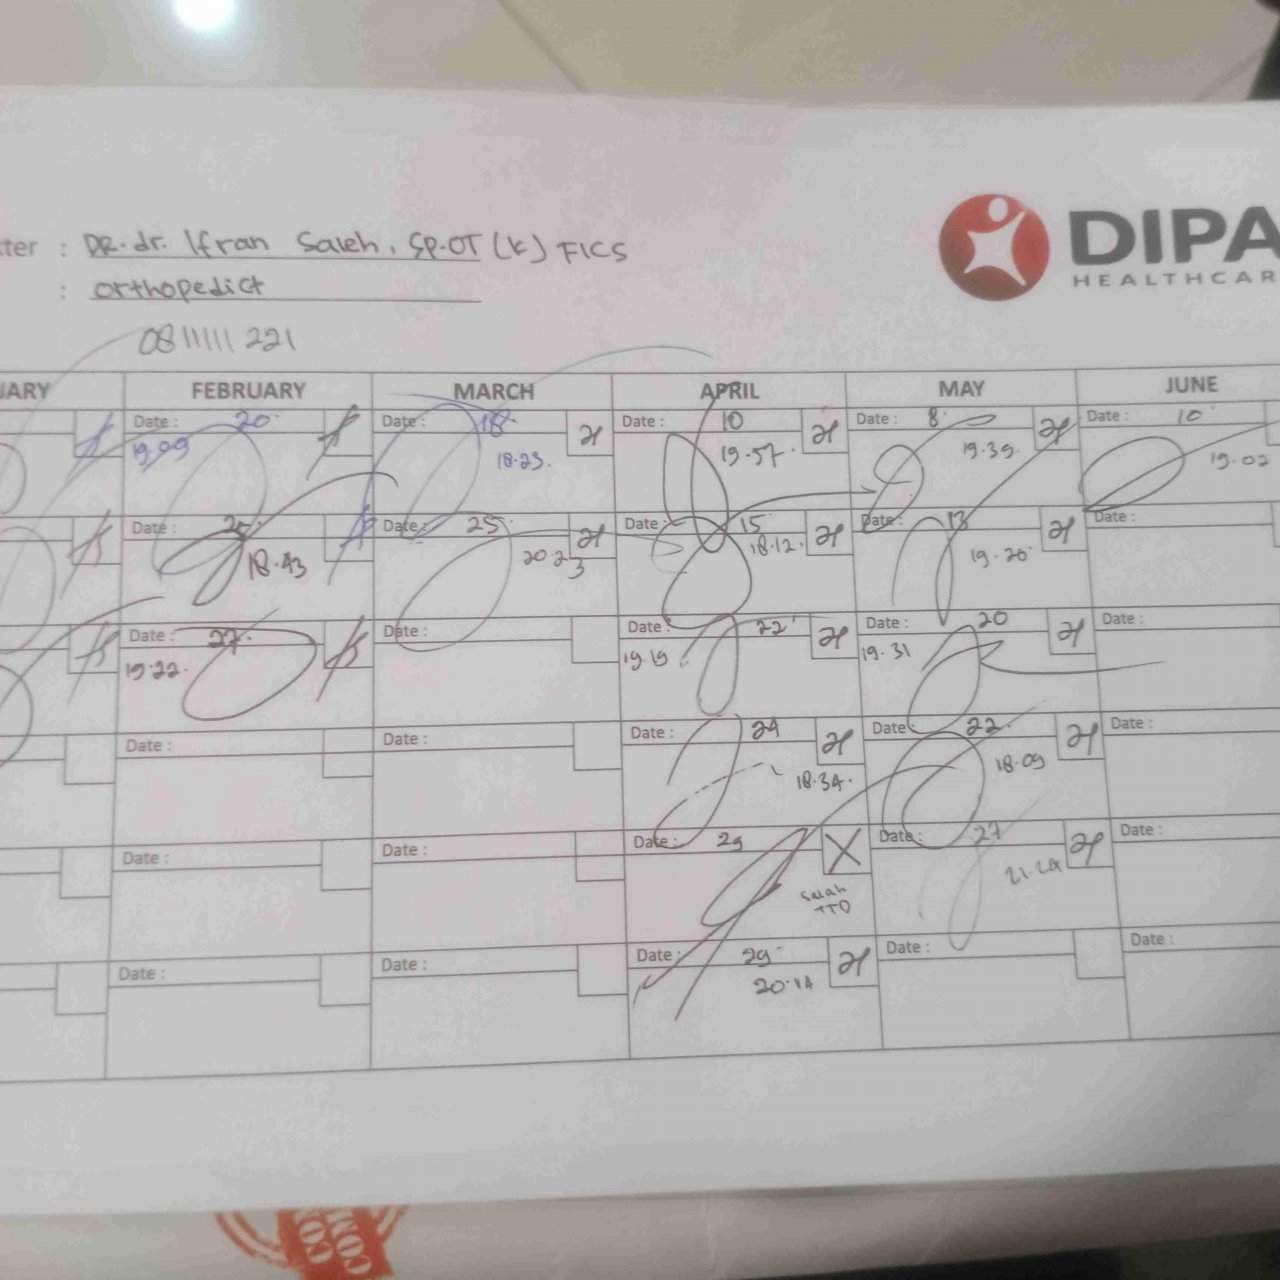 DIPA
HEALTHCAR
ter : DR. dr. Ifran Saleh, SP.OT (K) FICS
: Orthopedict
08 11111 221
UARY FEBRUARY MARCH APRIL MAY JUNE
Date : 20 Date : 18 Date : 10 Date : 8 Date : 10
19.09 18.23. 19.57. 19.39. 19.02
Date : 25 Date : 25 Date : 15 Date : 13 Date :
18.43 20.23 18.12. 19.20
Date : 27. Date : Date : 22 Date : 20 Date :
19.22. 19.19 19.31
Date : Date : Date : 24 Date : 22 Date :
18.34. 18.09
Date : Date : Date : 29 Date : 27 Date :
Salah
TTD
21.24
Date : Date : Date : 29 Date : Date :
20.14
COM
CON